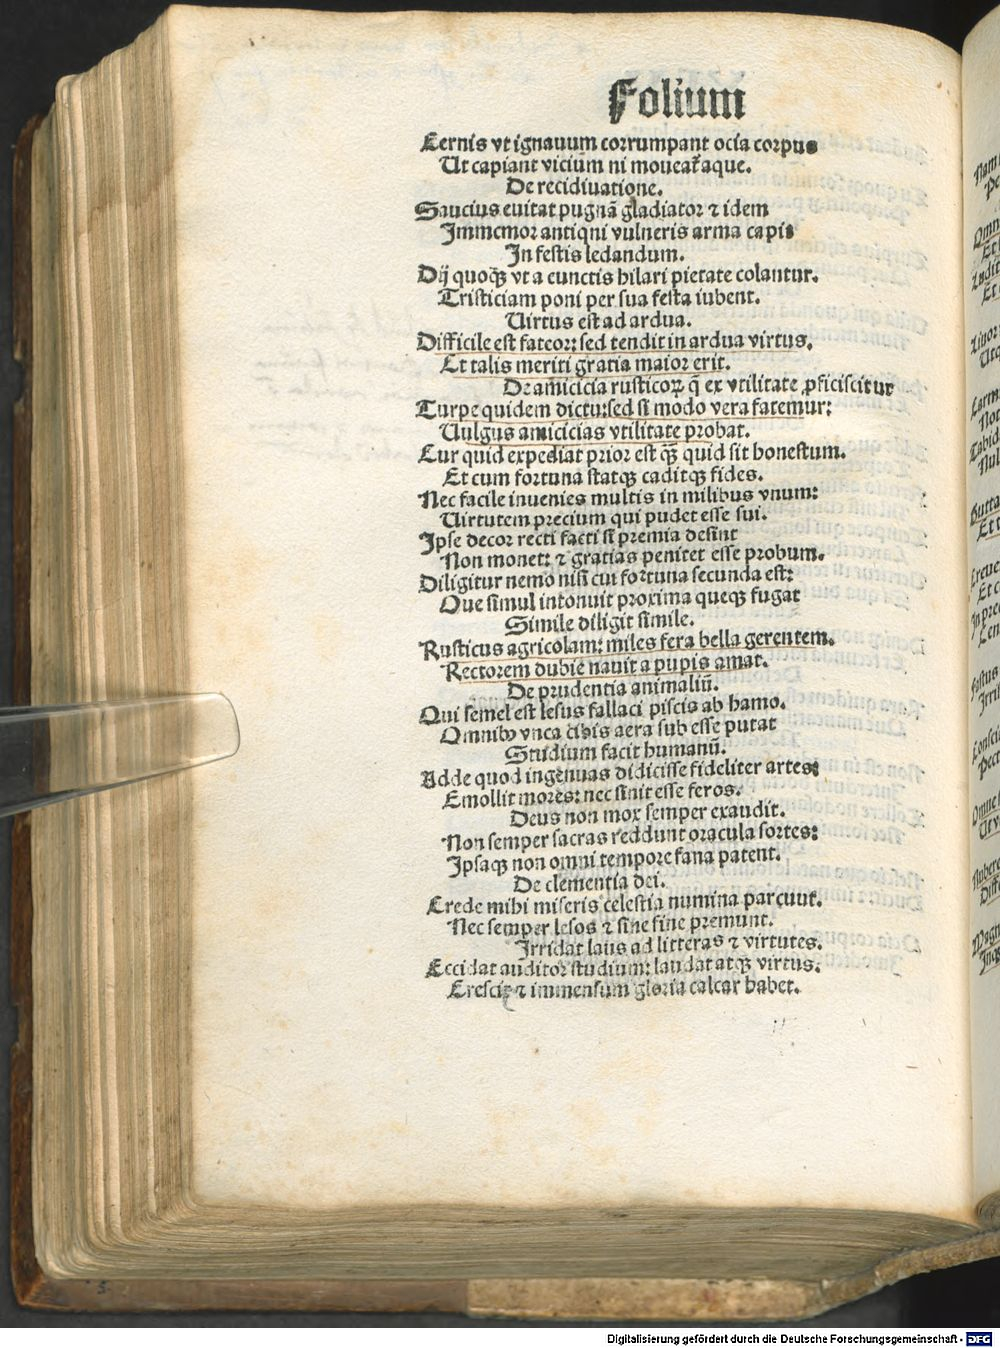 Folium
Cernis vt ignauum corrumpant ocia corpus
Ut capiant viciũm ni moueat᷑ aque.
De recidiuatione.
Saucius euitat pugnã gladiator ⁊ idem
Jmmemor antiqni vulneris arma capit
Jn festis ledandum.
Dij quoqꝫ vt a cunctis hilari pietate colantur.
Tristiciam poni per sua festa iubent.
Uirtus est ad ardua.
Difficile est fateor: sed tendit in ardua virtus.
Et talis meriti gratia maior erit.
De amicicia rusticoꝝ q̃ ex vtilitate ꝓficiscitur
Turpe quidem dictu: sed si modo vera fatemur:
Uulgus amicicias vtilitate probat.
Cur quid expediat prior est qꝫ̃ quid sit honestum.
Et cum fortuna statqꝫ caditqꝫ fides.
Nec facile inuenies multis in milibus vnum:
Uirtutem precium qui pudet esse sui.
Jpse decor recti facti si premia desint
Non monet: ⁊ gratias penitet esse probum.
Diligitur nemo nisi cui fortuna secunda est:
Que simul intonuit proxima queqꝫ fugat
Simile diligit simile.
Rusticus agricolam: miles fera bella gerentem.
Rectorem dubie nauit a pupis amat.
De prudentia animaliũ.
Qui semel est lesus fallaci piscis ab hamo.
Omnibꝰ vnca cibis aera sub esse putat
Studium facit humanũ.
Adde quod ingenuas didicisse fideliter artes:
Emollit mores: nec sinit esse feros.
Deus non mox semper exaudit.
Non semper sacras reddunt oracula sortes:
Jpsaqꝫ non omni tempore fana patent.
De clementia dei.
Crede mihi miseris celestia numina parcunt.
Nec semper lesos ⁊ sine fine premunt.
Jrridat laus ad litteras ⁊ virtutes.
Eccidat auditor studium: laudat atqꝫ virtus:
Crescit ⁊ immensum gloria calcar habet.
Digitalisierung gefördert durch die Deutsche Forschungsgemeinschaft - DFG